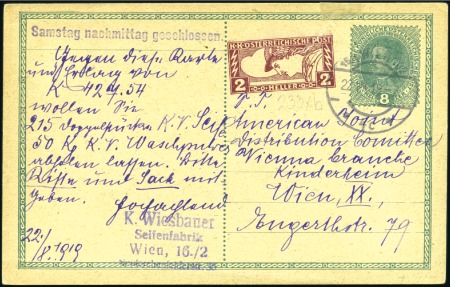 Samstag nachmittag geschlossen.
Gegen diese Karte
und Erlag von
K 4209.54
wollen Sie
215 Doppelstücke K.V. Seife
50 Kg K.V. Waschpulver
abholen lassen. Bitte
Kiste und Sack mit-
geben.
Hochachtend
22./
8. 1919
K. Wiesbauer
Seifenfabrik
Wien, 16./2
K.K. ÖSTERREICHISCHE POST
2 HELLER 2
8
P.T.
American Joint
Distribution Comittee
Vienna branche
Kinderheim
Wien, XX.,
Engerthstr. 79